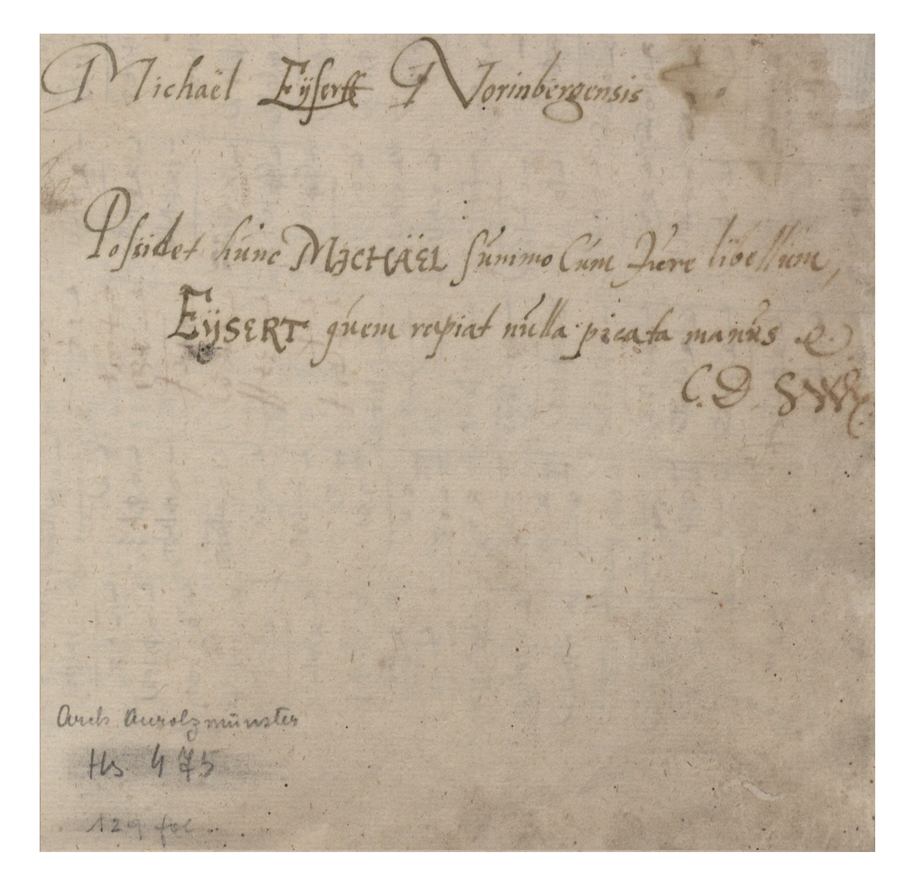 Michaël Eÿsert Norinbergensis
Possidet hunc MICHAËL summo Cum Iure libellum,
EŸSERT quem rapiat nulla picata manus
C. D.
Arch Aurolzmünster
Hs 475
129 fol.